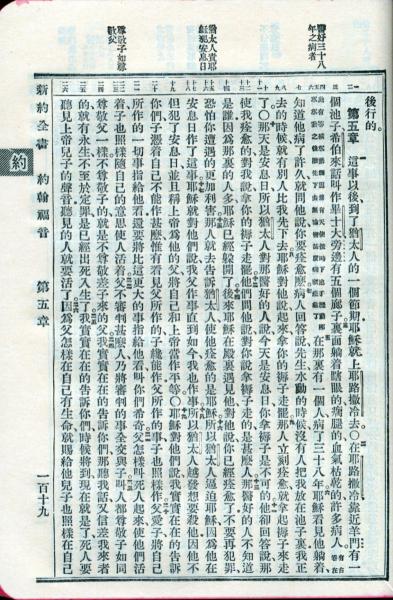 醫好三十八
年之病者
猶太人責耶
穌犯安息日
尊敬子如尊
敬父
後行的。
第五章 這事以後到了猶太人的一個節期耶穌就上耶路撒冷去〇在耶路撒冷靠近羊門有一
個池子希伯來話叫作畢士大旁邊有五個廊子裏面躺着瞎眼的瘸腿的血氣枯乾的許多病人
在那裏有一個人病了三十八年耶穌看見他躺着
知道他病了許久就問他說你要痊愈麼病人回答說先生水動的時候沒有人把我放在池子裏我正
去的時候就有別人比我先下去耶穌對他說起來拿你的褥子走罷那人立刻痊愈就拿起褥子來走
了〇那天是安息日所以猶太人對那醫好的人說今天是安息日你拿褥子是不可的他卻回答說那
使我痊愈的對我說拿你的褥子走罷他們問他說對你說拿褥子走的是甚麼人那醫好的人不知道
是誰因爲那裏的人多耶穌已經躲開了後來耶穌在殿裏遇見他對他說你已經痊愈了不要再犯罪
恐怕你遭遇的更加利害那人就去告訴猶太人使他痊愈的是耶穌所以猶太人逼迫耶穌因爲他在
安息日作了這事耶穌就對他們說我父作事直到如今我也作事所以猶太人越發想要殺他因他不
但犯了安息日並且稱上帝爲他的父將自己和上帝當作平等〇耶穌對他們說我實實在在的告訴
你們子憑着自己不能作甚麼惟有看見父所作的子纔能作父所作的事子也照樣作父愛子將自己
所作的一切事指給他看還要將比這更大的事指給他看叫你們希奇父怎樣叫死人起來使他們活
着子也照樣隨自己的意思使人活着父不審判甚麼人乃將審判的事全交與子叫人都尊敬子如同
尊敬父一樣不尊敬子的就是不尊敬差子來的父我實實在在的告訴你們那聽我話又信差我來者
的就有永生不至於定罪是已經出死入生了我實實在在的告訴你們時候將到現在就是了死人要
聽見上帝兒子的聲音聽見的人就要活了因爲父怎樣在自己有生命就賜給他兒子也照樣在自己
新約全書 約翰福音 第五章 一百十九
約